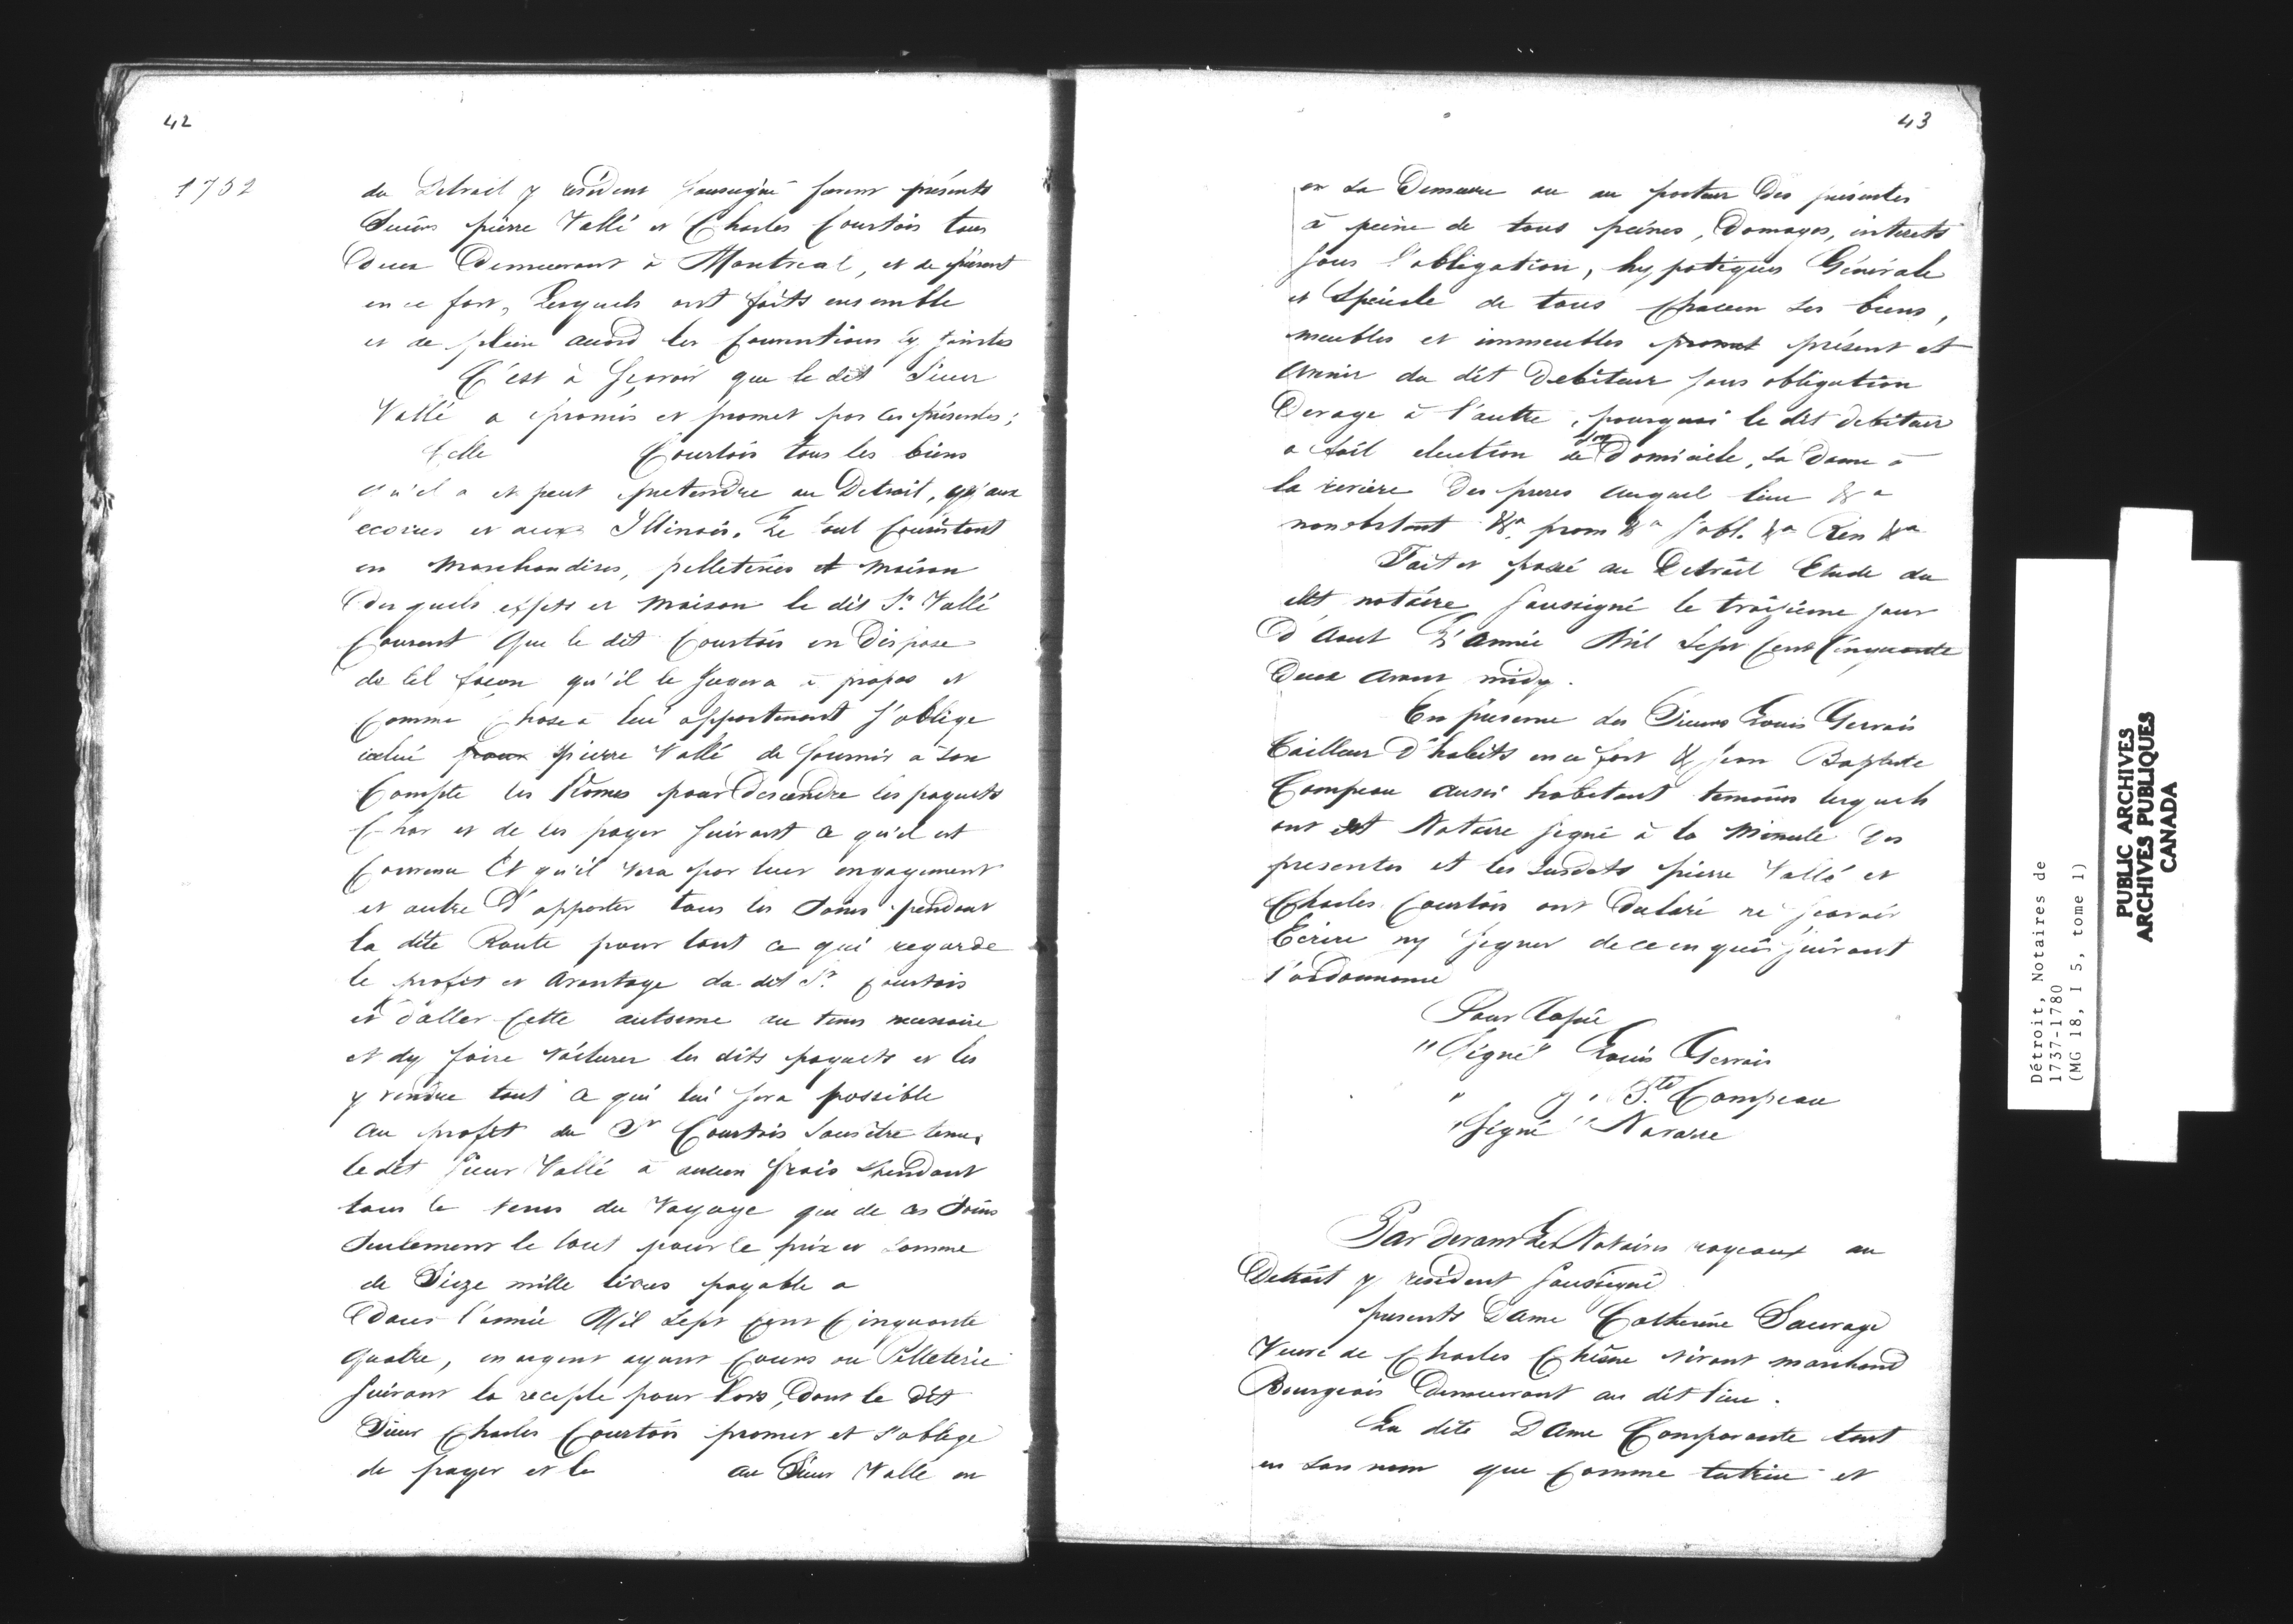 42
1752
du Detroit y résident soussigné furent présents
Sieurs pierre Vallé et Charles Courtois tous
Deux Demeurant à Montreal, et de présent
en ce fort, Lesquels ont faits ensemble
et de plein acord les Conventions cy jointes
C'est à Sçavoir que le dit Sieur
Vallé a promis et promet par ces présentes;
Celle Courtois tous les biens
qu'il a et peut pretendre au Detroit, qu'aux
ecores et aux Illinois. Le tout Consistant
en marchandises, pelleteries et maison
Des quels effets et maison le dit Sr. Vallé
Consent que le dit Courtois en Dispose
de tel facon qu'il le jugera à propos et
Comme Chose à lui appartenant s'oblige
icelui pour pierre Vallé de fournir à son
Compte les hommes pour Descendre les paquets
et de les payer suivant ce qu'il est
Convenu Et qu'il sera par leur engagement
et outre D'apporter tous les soins pendant
la dite Route pour tout ce qui regarde
le profit et avantage du dit Sr. Courtois
et d'aller Cette automne au tems necessaire
et dy faire voiturer les dits paquets et les
y rendre tout ce qui lui sera possible
au profit du Sr Courtois sans être tenu
le dit Sieur Vallé à aucun frais pendant
tous le tems du Voyage que de ces soins
seulement le tout pour le prix et somme
de Seize mille livres payable a
Dans l'année Mil sept cent Cinquante
quatre, en argent ayant Cours ou Pelleterie
suivant la recepte pour lors, Dont le dit
Sieur Charles Courtois promet et s'oblige
de payer et le au Sieur Vallé en
43
en sa Demeure ou au porteur Des présentes
à peine de tous peines, Domages, interets
sous l'obligation, hypotiques Générale
et Spéciale de tous Chacun ses biens,
meubles et immeubles promet présent et
avenir du dit Debiteur sous obligation
Derage à l'autre, pourquoi le dit debiteur
a fait election de son Domicile, sa Dame à
la reviere Des pures auquel lieu &a
nonobstant &a. prom &a s'obl. &a Ren &a
Fait et passé au Detroit Etude du
dit notaire soussigné le troisieme jour
D'Aout L'année Mil Sept Cent Cinquante
Deux avant midy.
En présence des Sieurs Louis Gervais
tailleur D'habits en ce fort & Jean Baptiste
Campeau aussi habitant temoins lesquels
ont et Notaire signé à la Minute Des
presentes et les susdits pierre Vallé et
Charles Courtois ont Declaré ne scavoir
Ecrire ny signer de ce enquis suivant
l'ordonnance
Pour Copie
"Signé" Louis Gervais
" J. Bte Campeau
"Signé" Navarre
Par devant Les Notaires royeaux au
Detroit y résident soussigné
presents Dame Catherine Sauvage
Veuve de Charles Chêsne vivant marchand
Bourgeois Demeurant au dit lieu.
La dite Dame Comparante tant
en son nom que Comme tutrice et
Détroit, Notaires de
1737-1780
(MG 18, I 5, tome 1)
PUBLIC ARCHIVES
ARCHIVES PUBLIQUES
CANADA